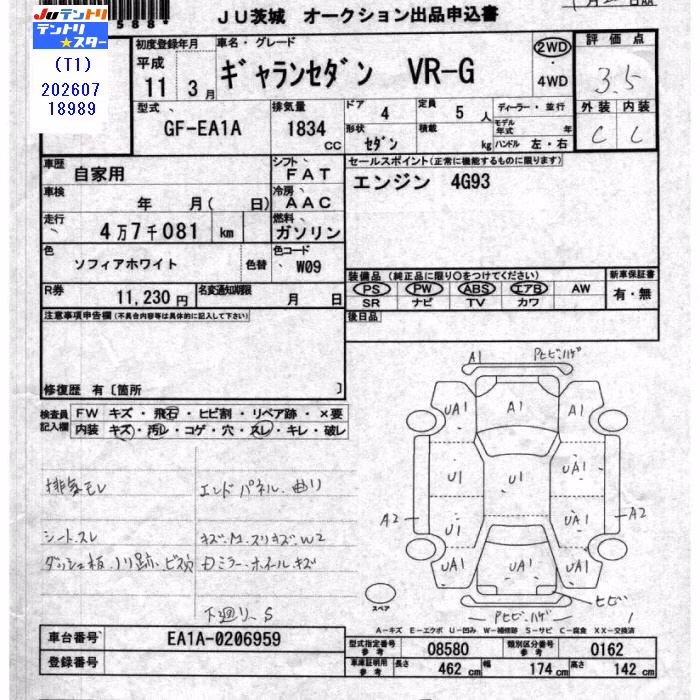 JUテントリ
テントリ★スター
(T1)
202607
18989
588
JU茨城 オークション出品申込書
初度登録年月
平成
11 3月
車名・グレード
ギャランセダン VR-G
2WD
・
4WD
評価点
3.5
外装 内装
C C
型式
GF-EA1A
排気量
1834
CC
ドア 4
定員 5 人
ディーラー・並行
モデル年式 年
形状 セダン
積載 kg
ハンドル 左・右
車歴 自家用
シフト FAT
セールスポイント(正常に機能するものに限ります)
エンジン 4G93
車検 年 月( 日)
冷房 AAC
走行 4万7千081 km
燃料 ガソリン
色 ソフィアホワイト 色替
色コード W09
装備品(純正品に限り○をつけてください)
新車保証書
PS PW ABS エアB AW
SR ナビ TV カワ
有・無
R券 11,230円
名変通知期限 月 日
後日品
注意事項申告欄(不具合内容等は具体的に記入して下さい)
修復歴 有〔箇所 〕
検査員記入欄
FW キズ・飛石・ヒビ割・リペア跡・×要
内装 キズ・汚レ・コゲ・穴・スレ・キレ・破レ
排気モレ
エンドパネル.曲リ
シートスレ
キズ.M.スリキズ.W2
ダッシュ板.ノリ跡.ビス穴
Dミラー.ホイールキズ
下廻リ.S
A1 Pヒビ.ハゲ
UA1 A1 UA1
U1 U1 UA1
A2 U1 UA1 A2
UA1 UA1 UA1
ヒビ
Pヒビ.ハゲ
スペア
A-キズ E-エクボ U-凹み W-補修跡 S-サビ C-腐食 XX-交換済
車台番号 EA1A-0206959
登録番号
型式指定番号 参考 08580
類別区分番号 参考 0162
車庫証明用 参考 長さ 462 cm 幅 174 cm 高さ 142 cm